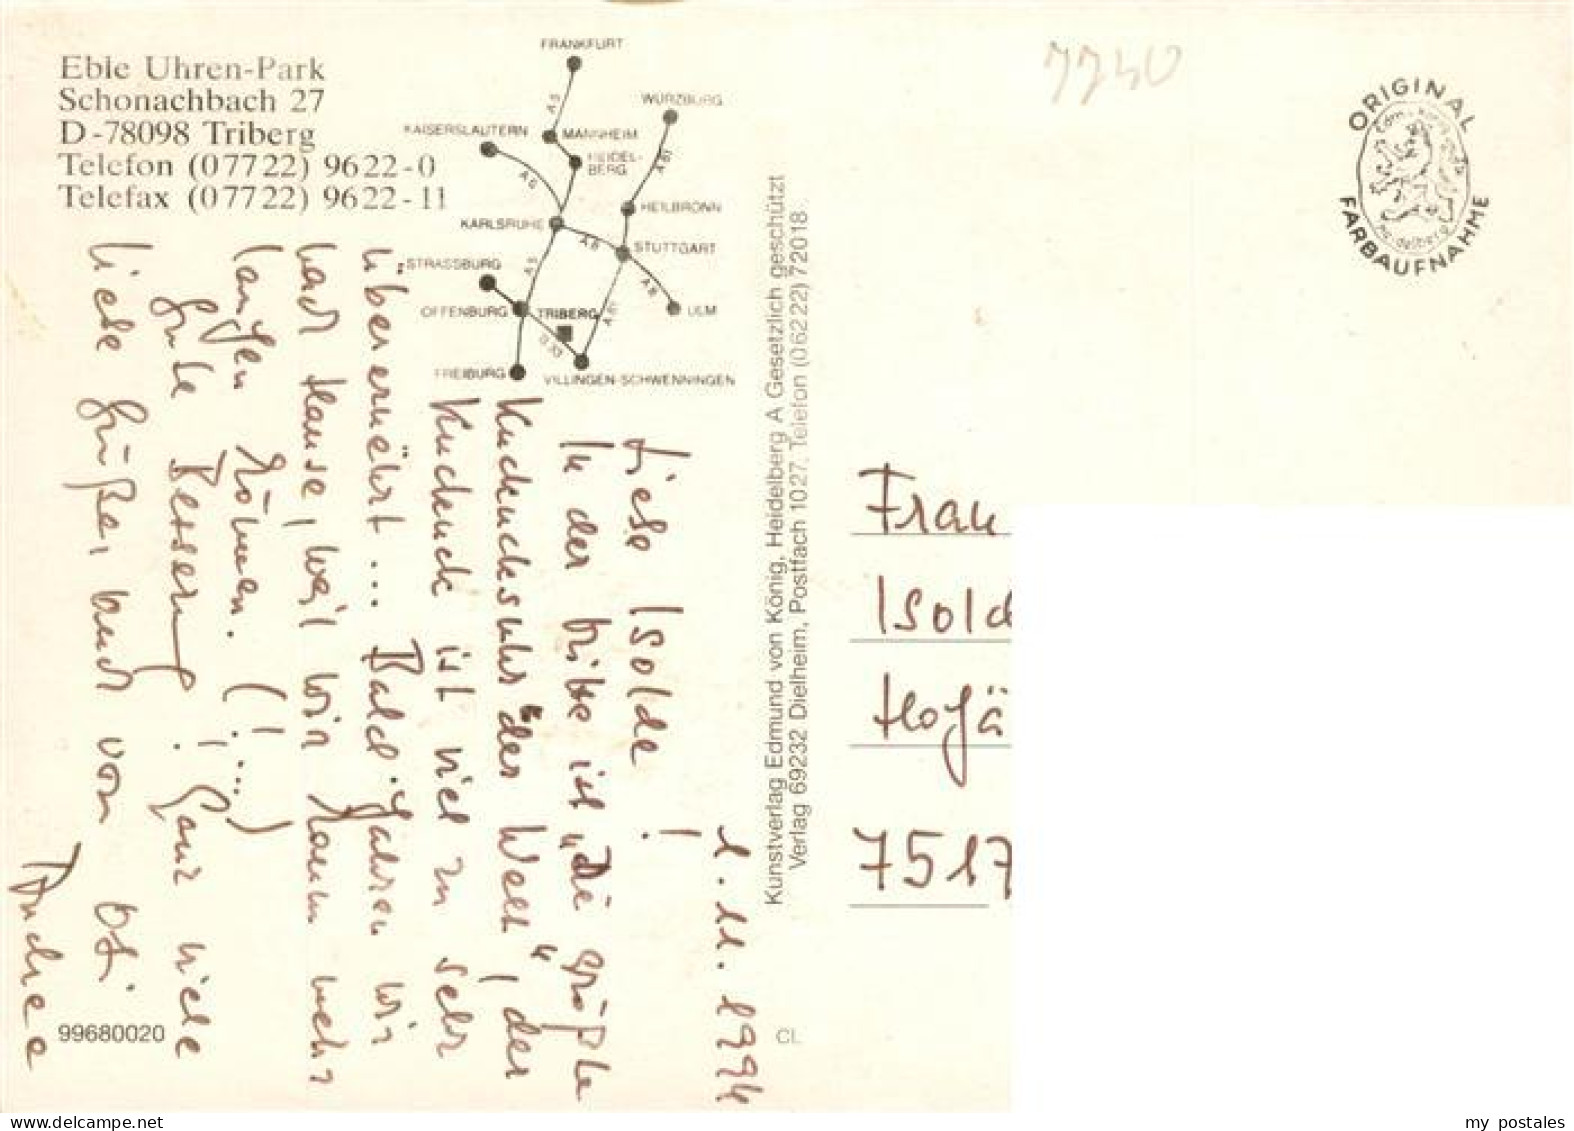 Eble Uhren-Park
Schonachbach 27
D-78098 Triberg
Telefon (07722) 9622-0
Telefax (07722) 9622-11
FRANKFURT
A 5
WÜRZBURG
KAISERSLAUTERN
MANNHEIM
HEIDEL-
BERG
A 6
A 81
HEILBRONN
KARLSRUHE
A 8
STUTTGART
STRASSBURG
A 5
A 8
OFFENBURG
TRIBERG
A 81
ULM
B 33
FREIBURG
VILLINGEN-SCHWENNINGEN
1.11.1994
Liebe Isolde!
In der Mitte ist „Die größte
Kuckucksuhr der Welt“, der
Kuckuck ist viel zu sehr
überernährt... Bald fahren wir
nach Hause, weil wir kaum mehr
laufen können. (!...)
Gute Besserung! Ganz viele
liebe Grüße, auch von
Andrea
Kunstverlag Edmund von König, Heidelberg A Gesetzlich geschützt
Verlag 69232 Dielheim, Postfach 1027, Telefon (06222) 72018
99680020
CL
7740
ORIGINAL
Edm. von König
Heidelberg
FARBAUFNAHME
Frau
Isold
Hofä
7517
my postales